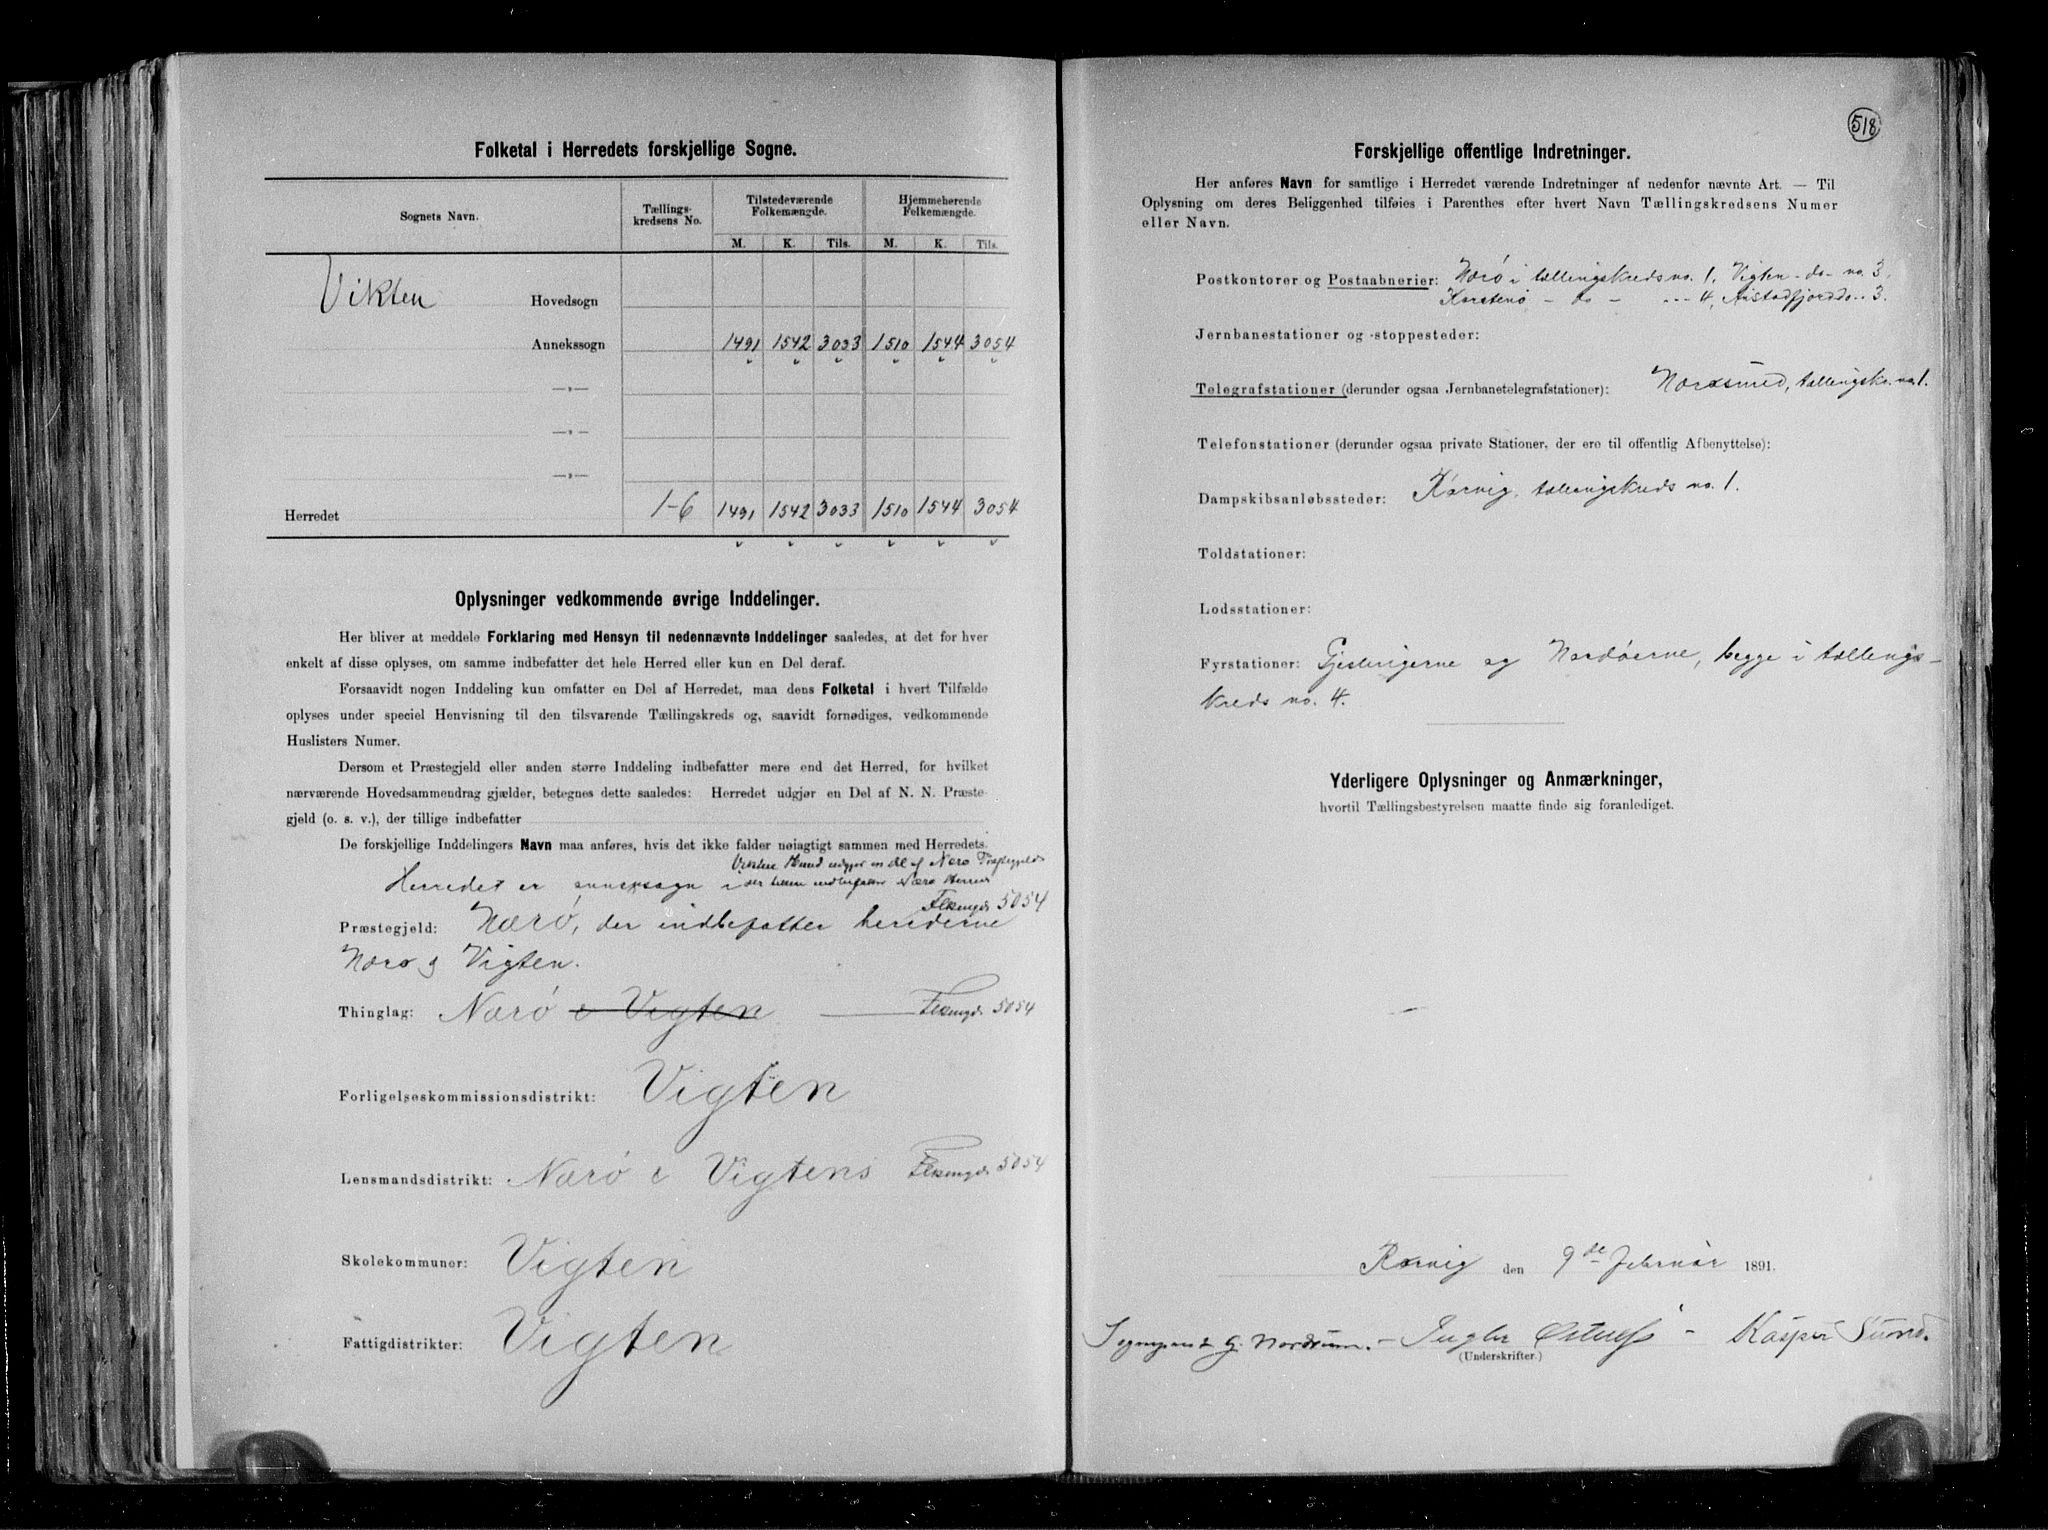 Folketal i Herredets forskjellige Sogne.
Sognets Navn. Tællings-kredsens No. Tilstedeværende Folkemængde. Hjemmehørende Folkemængde.
M. K. Tils. M. K. Tils.
Vikten Hovedsogn
Annekssogn 1491 1542 3033 1510 1544 3054
—„—
—„—
—„—
Herredet 1-6 1491 1542 3033 1510 1544 3054
Oplysninger vedkommende øvrige Inddelinger.
Her bliver at meddele Forklaring med Hensyn til nedennævnte Inddelinger saaledes, at det for hver
enkelt af disse oplyses, om samme indbefatter det hele Herred eller kun en Del deraf.
Forsaavidt nogen Inddeling kun omfatter en Del af Herredet, maa dens Folketal i hvert Tilfælde
oplyses under speciel Henvisning til den tilsvarende Tællingskreds og, saavidt fornødiges, vedkommende
Huslisters Numer.
Dersom et Præstegjeld eller anden større Inddeling indbefatter mere end det Herred, for hvilket
nærværende Hovedsammendrag gjælder, betegnes dette saaledes: Herredet udgjør en Del af N. N. Præste-
gjeld (o. s. v.), der tillige indbefatter
De forskjellige Inddelingers Navn maa anføres, hvis det ikke falder nøiagtigt sammen med Herredets.
Vikten Herred udgjør en del af Nærø Præstegjeld
Herredet er annekssogn i der tillige indbefatter Nærø Herred
5054
Præstegjeld: Nærø, der indbefatter herederne
Nærø og Vigten.
Thinglag: Nærø & Vigten 5054
Forligelseskommissionsdistrikt: Vigten
Lensmandsdistrikt: Nærø & Vigtens 5054
Skolekommuner: Vigten
Fattigdistrikter: Vigten
518
Forskjellige offentlige Indretninger.
Her anføres Navn for samtlige i Herredet værende Indretninger af nedenfor nævnte Art. — Til
Oplysning om deres Beliggenhed tilføies i Parenthes efter hvert Navn Tællingskredsens Numer
eller Navn.
Postkontorer og Postaabnerier: Nærø i tællingskreds no. 1, Vigten - do - no. 3,
- do - 4, do. 3.
Jernbanestationer og -stoppesteder:
Telegrafstationer (derunder ogsaa Jernbanetelegrafstationer): Nærøsund, tællingskr. no. 1.
Telefonstationer (derunder ogsaa private Stationer, der ere til offentlig Afbenyttelse):
Dampskibsanløbssteder: Rørvig, tællingskreds no. 1.
Toldstationer:
Lodsstationer:
Fyrstationer: Gjeslingerne og Nordøerne, begge i tællings-
kreds no. 4.
Yderligere Oplysninger og Anmærkninger,
hvortil Tællingsbestyrelsen maatte finde sig foranlediget.
Rørvig den 9de Februar 1891.
G. Nordrum. - Kasper Sund.
(Underskrifter.)